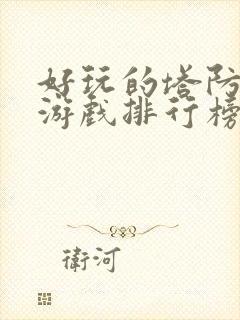 好玩的塔防
游戏排行榜
衛河